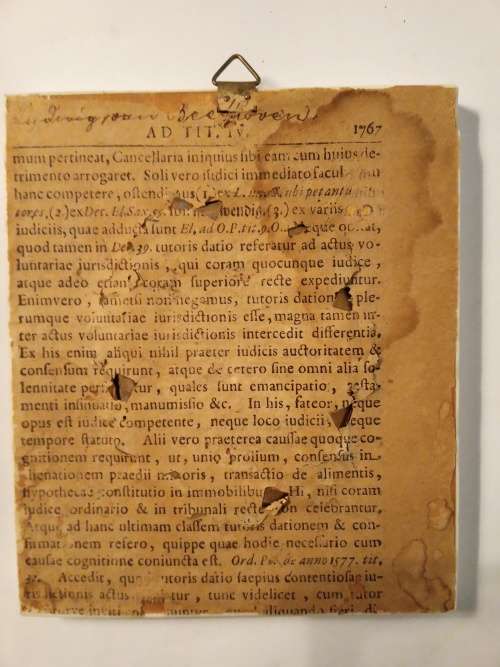 Ludwig van Beethoven
AD TIT. IV. 1767
mum pertineat, Cancellaria iniquius sibi eam cum huius de-
trimento arrogaret. Soli vero iudici immediato facul
hanc competere, ostendimus (1.) ex L.
(2.) ex Dec. El. Sax. (3.) ex variis
iudiciis, quae adducta sunt El. ad O. P. tit. 9.
quod tamen in Dec. 39. tutoris datio referatur ad actus vo-
luntariae jurisdictionis, qui coram quocunque iudice,
atque adeo etiam coram superiore recte expediuntur.
Enimvero, tametsi non negamus, tutoris dationem ple-
rumque voluntariae iurisdictionis esse, magna tamen in-
ter actus voluntariae iurisdictionis intercedit differentia.
Ex his enim aliqui nihil praeter iudicis auctoritatem &
consensum requirunt, atque de cetero sine omni alia so-
lennitate quales sunt emancipatio, testa-
menti insinuatio, manumissio &c. In his, fateor, neque
opus est iudice competente, neque loco iudicii, neque
tempore statuto. Alii vero praeterea caussae quoque co-
gnitionem requirunt, ut, unio prolium, consensus in
alienationem praedii minoris, transactio de alimentis,
hypothecae constitutio in immobilibus. Hi, nisi coram
iudice ordinario & in tribunali recte non celebrantur.
Atque ad hanc ultimam classem tutoris dationem & con-
firmationem refero, quippe quae hodie necessario cum
causae cognitione coniuncta est. Ord. anno 1577. tit.
Accedit, quod tutoris datio saepius contentiosae iu-
risdictionis actus tur, tunc videlicet, cum tutor
aliquando fieri, di